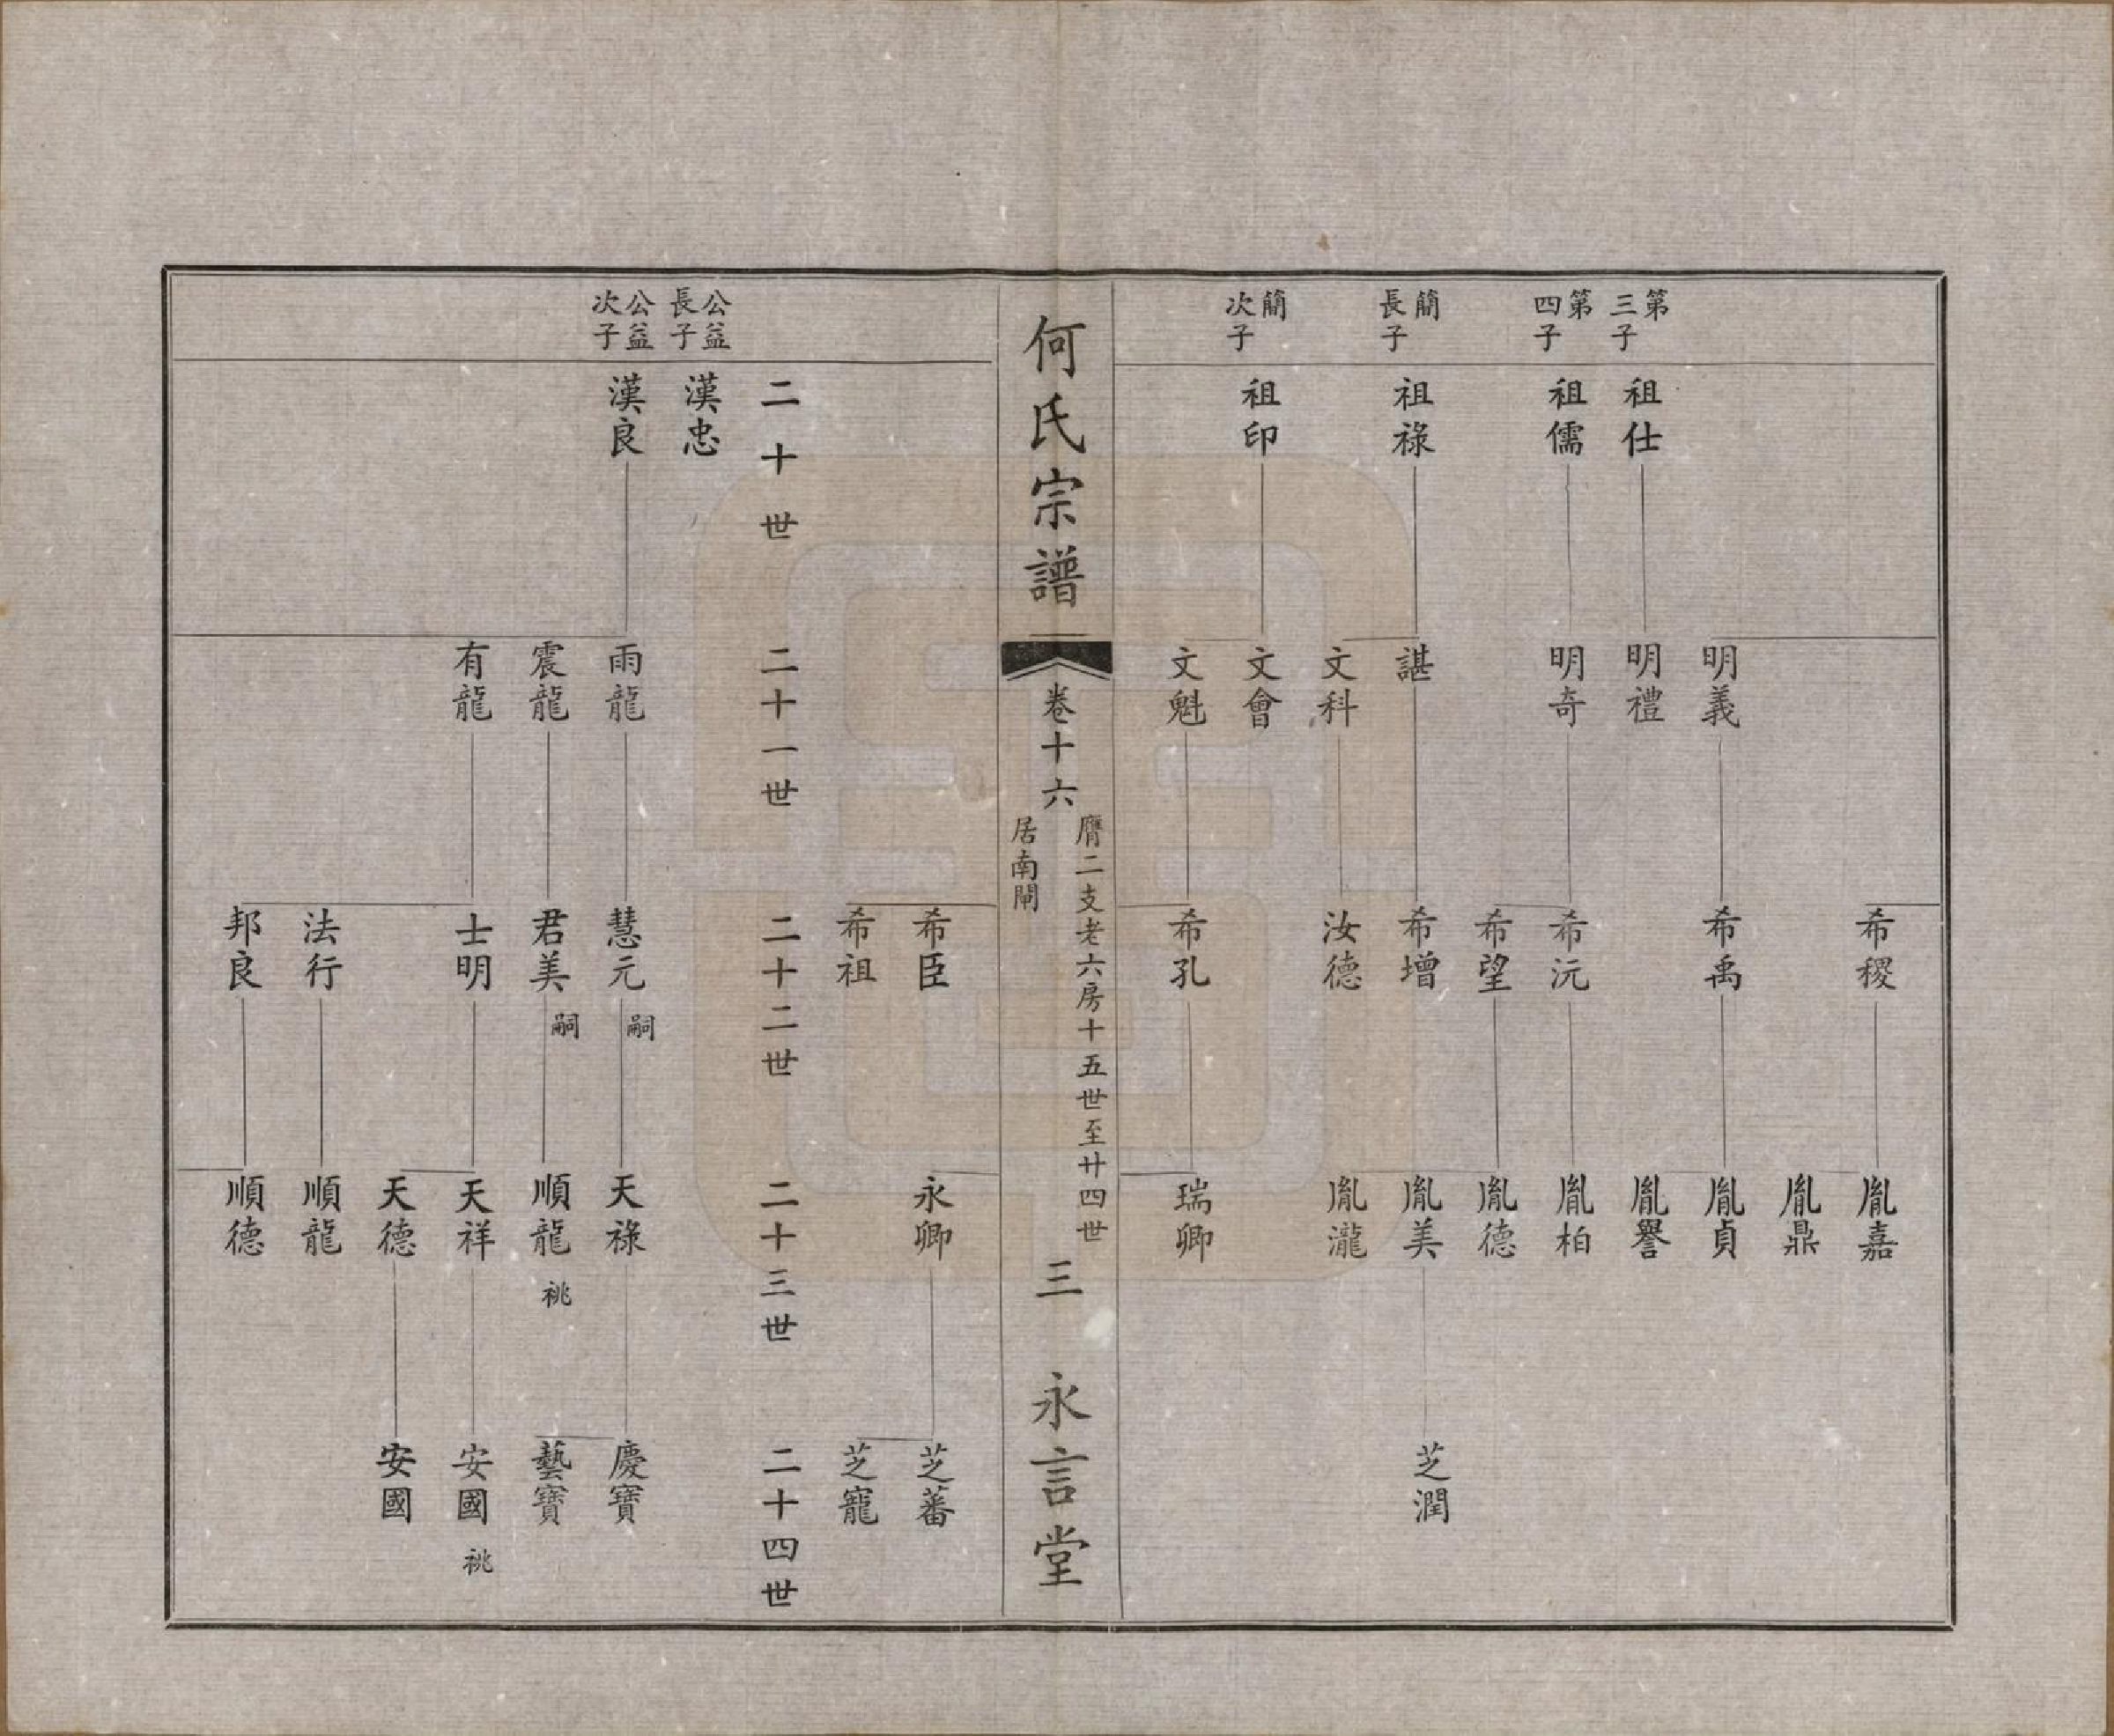 第三子
第四子
簡長子
簡次子
祖仕
祖儒
祖祿
祖印
明義
明禮
明奇
諶
文科
文會
文魁
希稷
希禹
希沅
希望
希增
汝德
希孔
胤嘉
胤鼎
胤貞
胤譽
胤柏
胤德
胤美
胤瀧
瑞卿
芝潤
何氏宗譜
卷十六
膺二支老六房十五世至廿四世
居南閘
三
永言堂
希臣
希祖
永卿
芝蕃
芝寵
二十世
二十一世
二十二世
二十三世
二十四世
公益長子
公益次子
漢忠
漢良
雨龍
震龍
有龍
慧元 嗣
君美 嗣
士明
法行
邦良
天祿
順龍 祧
天祥
天德
順龍
順德
慶寶
藝寶
安國 祧
安國